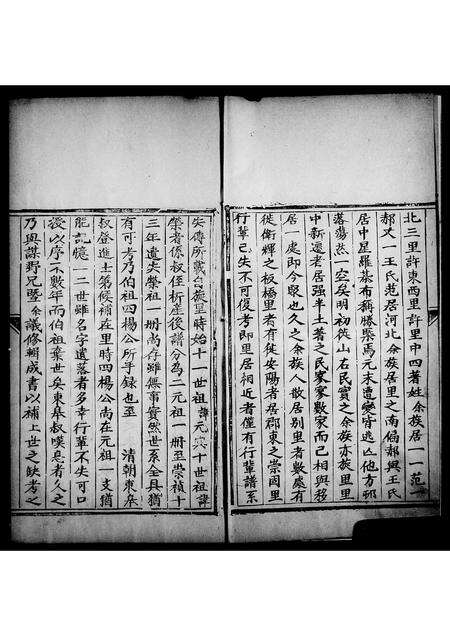 北三里許東西里許里中四著姓余族居一一范一
郝又一王氏范居河北余族居里之南偏郝與王氏
居中星羅棊布稱勝槩焉元末遭變皆逃凶他方邨
落蕩然一空矣明初徙山右民實之余族亦旋里里
中新還老居强半土著之民寥寥數家而己相與移
居一處即今聚也久之余族人散居别里者數處有
徙衛輝之板橋里者有徙安陽者居郡東之崇固里
行輩己失不可復考即里居相近者僅有行輩譜系
失傳所載台族皇時始十一世祖諱元 十世祖諱
榮者係叔侄析產後譜分為二元祖一册至崇禎十
三年遺失榮祖一册尚存雖無事實然世系全具猶
有可考乃伯祖四楊公所手録也至 清朝東皋
叔登進士第候補在里時四楊公尚在元祖一支猶
能記憶一二世雖名字遺落者多幸行輩不失可口
授以序不數年而伯祖棄世矣東皋叔嘆息者久之
乃與謀野兄暨余議修輯成書以補上世之缺考之